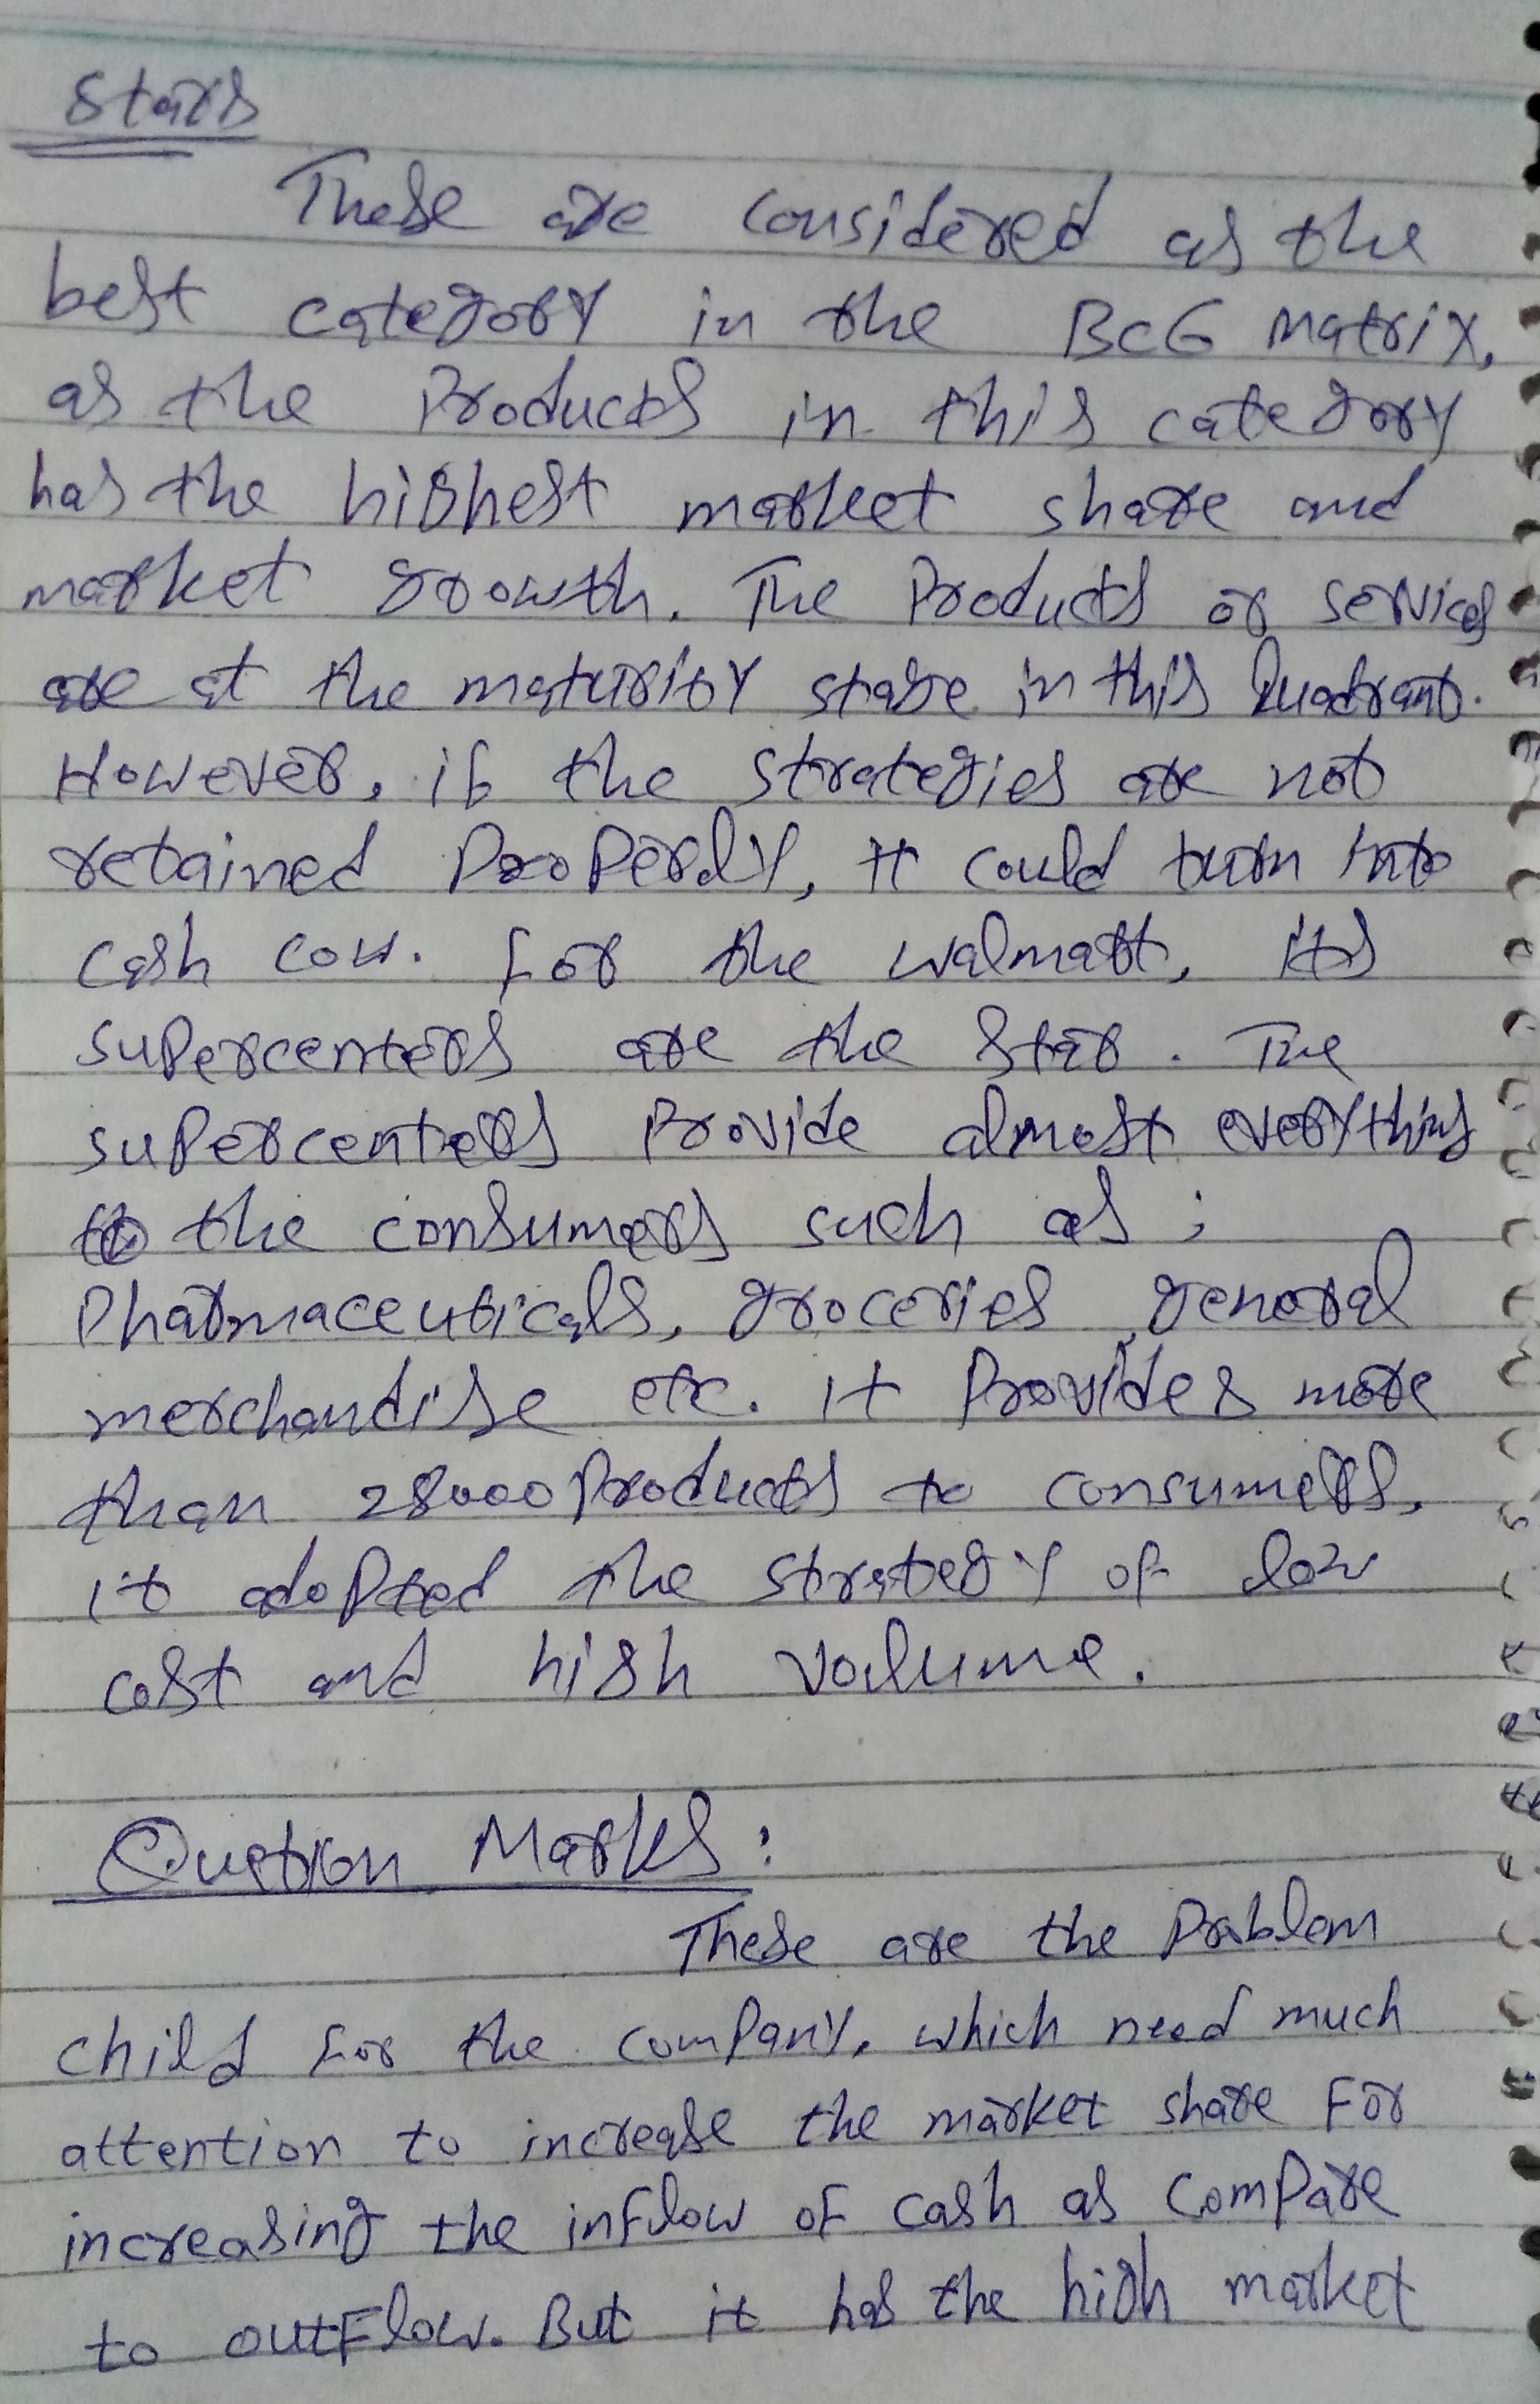 Stars
These are considered as the
best category in the BCG Matrix,
as the Products in this category
has the highest market share and
market growth. The Products or services
are at the maturity stage in this Quadrant.
However, if the strategies are not
retained Properly, it could turn into
cash cow. For the walmart, its
supercenters are the Star. The
supercenters Provide almost everything
to the consumers such as;
Pharmaceuticals, groceries, general
merchandise etc. it Provides more
than 28000 Products to consumers,
it adopted the strategy of low
cost and high volume.
Question Marks:
These are the Problem
child for the company, which need much
attention to increase the market share For
increasing the inflow of cash as compare
to outFlow. But it has the high market